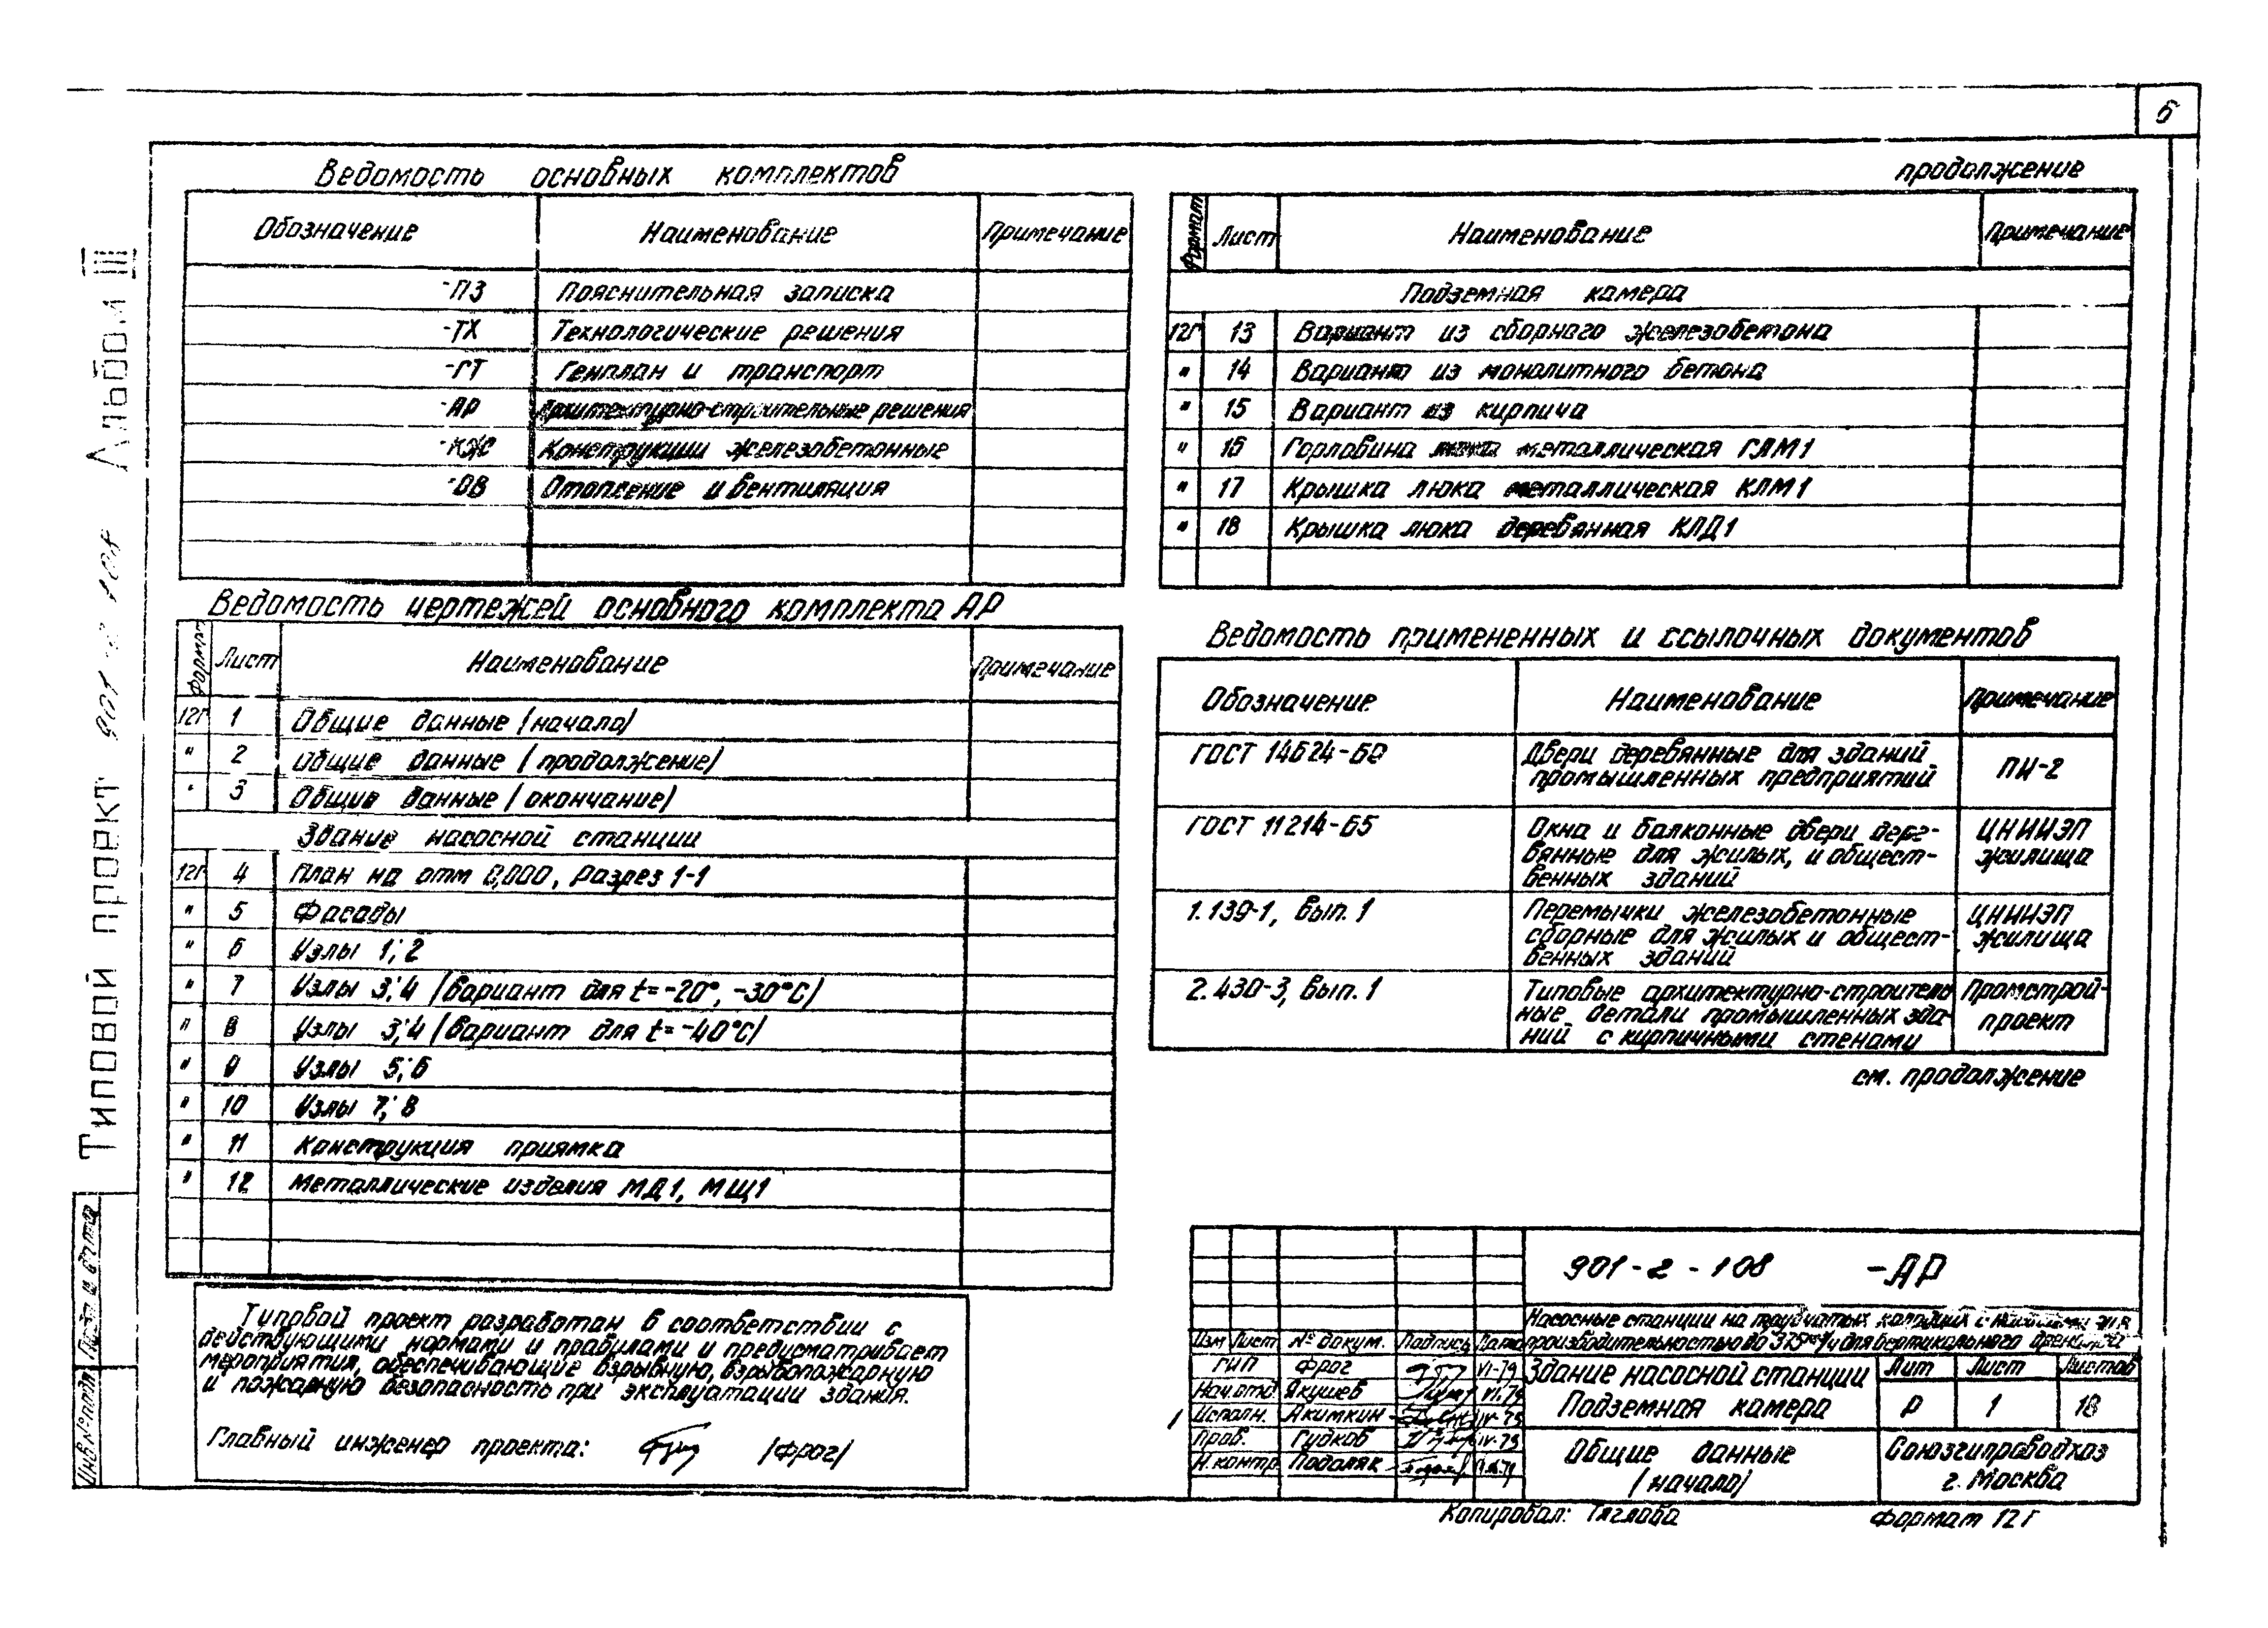 6
Типовой проект 901-2-108 Альбом III
Ведомость основных комплектов
Обозначение Наименование Примечание
-ПЗ Пояснительная записка
-ТХ Технологические решения
-ГТ Генплан и транспорт
-АР Архитектурно-строительные решения
-КЖ Конструкции железобетонные
-ОВ Отопление и вентиляция
Ведомость чертежей основного комплекта АР
Формат Лист Наименование Примечание
12Г 1 Общие данные (начало)
" 2 Общие данные (продолжение)
" 3 Общие данные (окончание)
Здание насосной станции
12Г 4 План на отм 0,000, Разрез 1-1
" 5 Фасады
" 6 Узлы 1; 2
" 7 Узлы 3; 4 (вариант для t=-20°, -30°С)
" 8 Узлы 3; 4 (вариант для t=-40°С)
" 9 Узлы 5; 6
" 10 Узлы 7; 8
" 11 Конструкция приямка
" 12 Металлические изделия МД1, МЩ1
Типовой проект разработан в соответствии с
действующими нормами и правилами и предусматривает
мероприятия, обеспечивающие взрывную, взрывопожарную
и пожарную безопасность при эксплуатации здания.
Главный инженер проекта: (Фрог)
продолжение
Формат Лист Наименование Примечание
Подземная камера
12Г 13 Вариант из сборного железобетона
" 14 Вариант из монолитного бетона
" 15 Вариант из кирпича
" 16 Горловина люка металлическая ГЛМ1
" 17 Крышка люка металлическая КЛМ1
" 18 Крышка люка деревянная КЛД1
Ведомость примененных и ссылочных документов
Обозначение Наименование Примечание
ГОСТ 14624-69 Двери деревянные для зданий
промышленных предприятий ПИ-2
ГОСТ 11214-65 Окна и балконные двери дере-
вянные для жилых, и общест-
венных зданий ЦНИИЭП
жилища
1.139-1, Вып. 1 Перемычки железобетонные
сборные для жилых и общест-
венных зданий ЦНИИЭП
жилища
2.430-3, Вып. 1 Типовые архитектурно-строитель
ные детали промышленных зда-
ний с кирпичными стенами Промстрой-
проект
см. продолжение
901-2-108 -АР
Насосные станции на трубчатых колодцах с насосами
производительностью до 375 м³/ч для вертикального дренажа
Изм Лист № докум. Подпись Дата
ГИП Фрог VI-79
Нач.отд Якушев VI.79
Исполн. Акимкин IV-79
Пров. Гудков IV-79
Н.контр. Подоляк
Здание насосной станции
Подземная камера
Лит Лист Листов
Р 1 18
Общие данные
(начало)
Союзгипроводхоз
г. Москва
Копировал: Тяглова Формат 12Г
Инв.№ подл. Подп. и дата